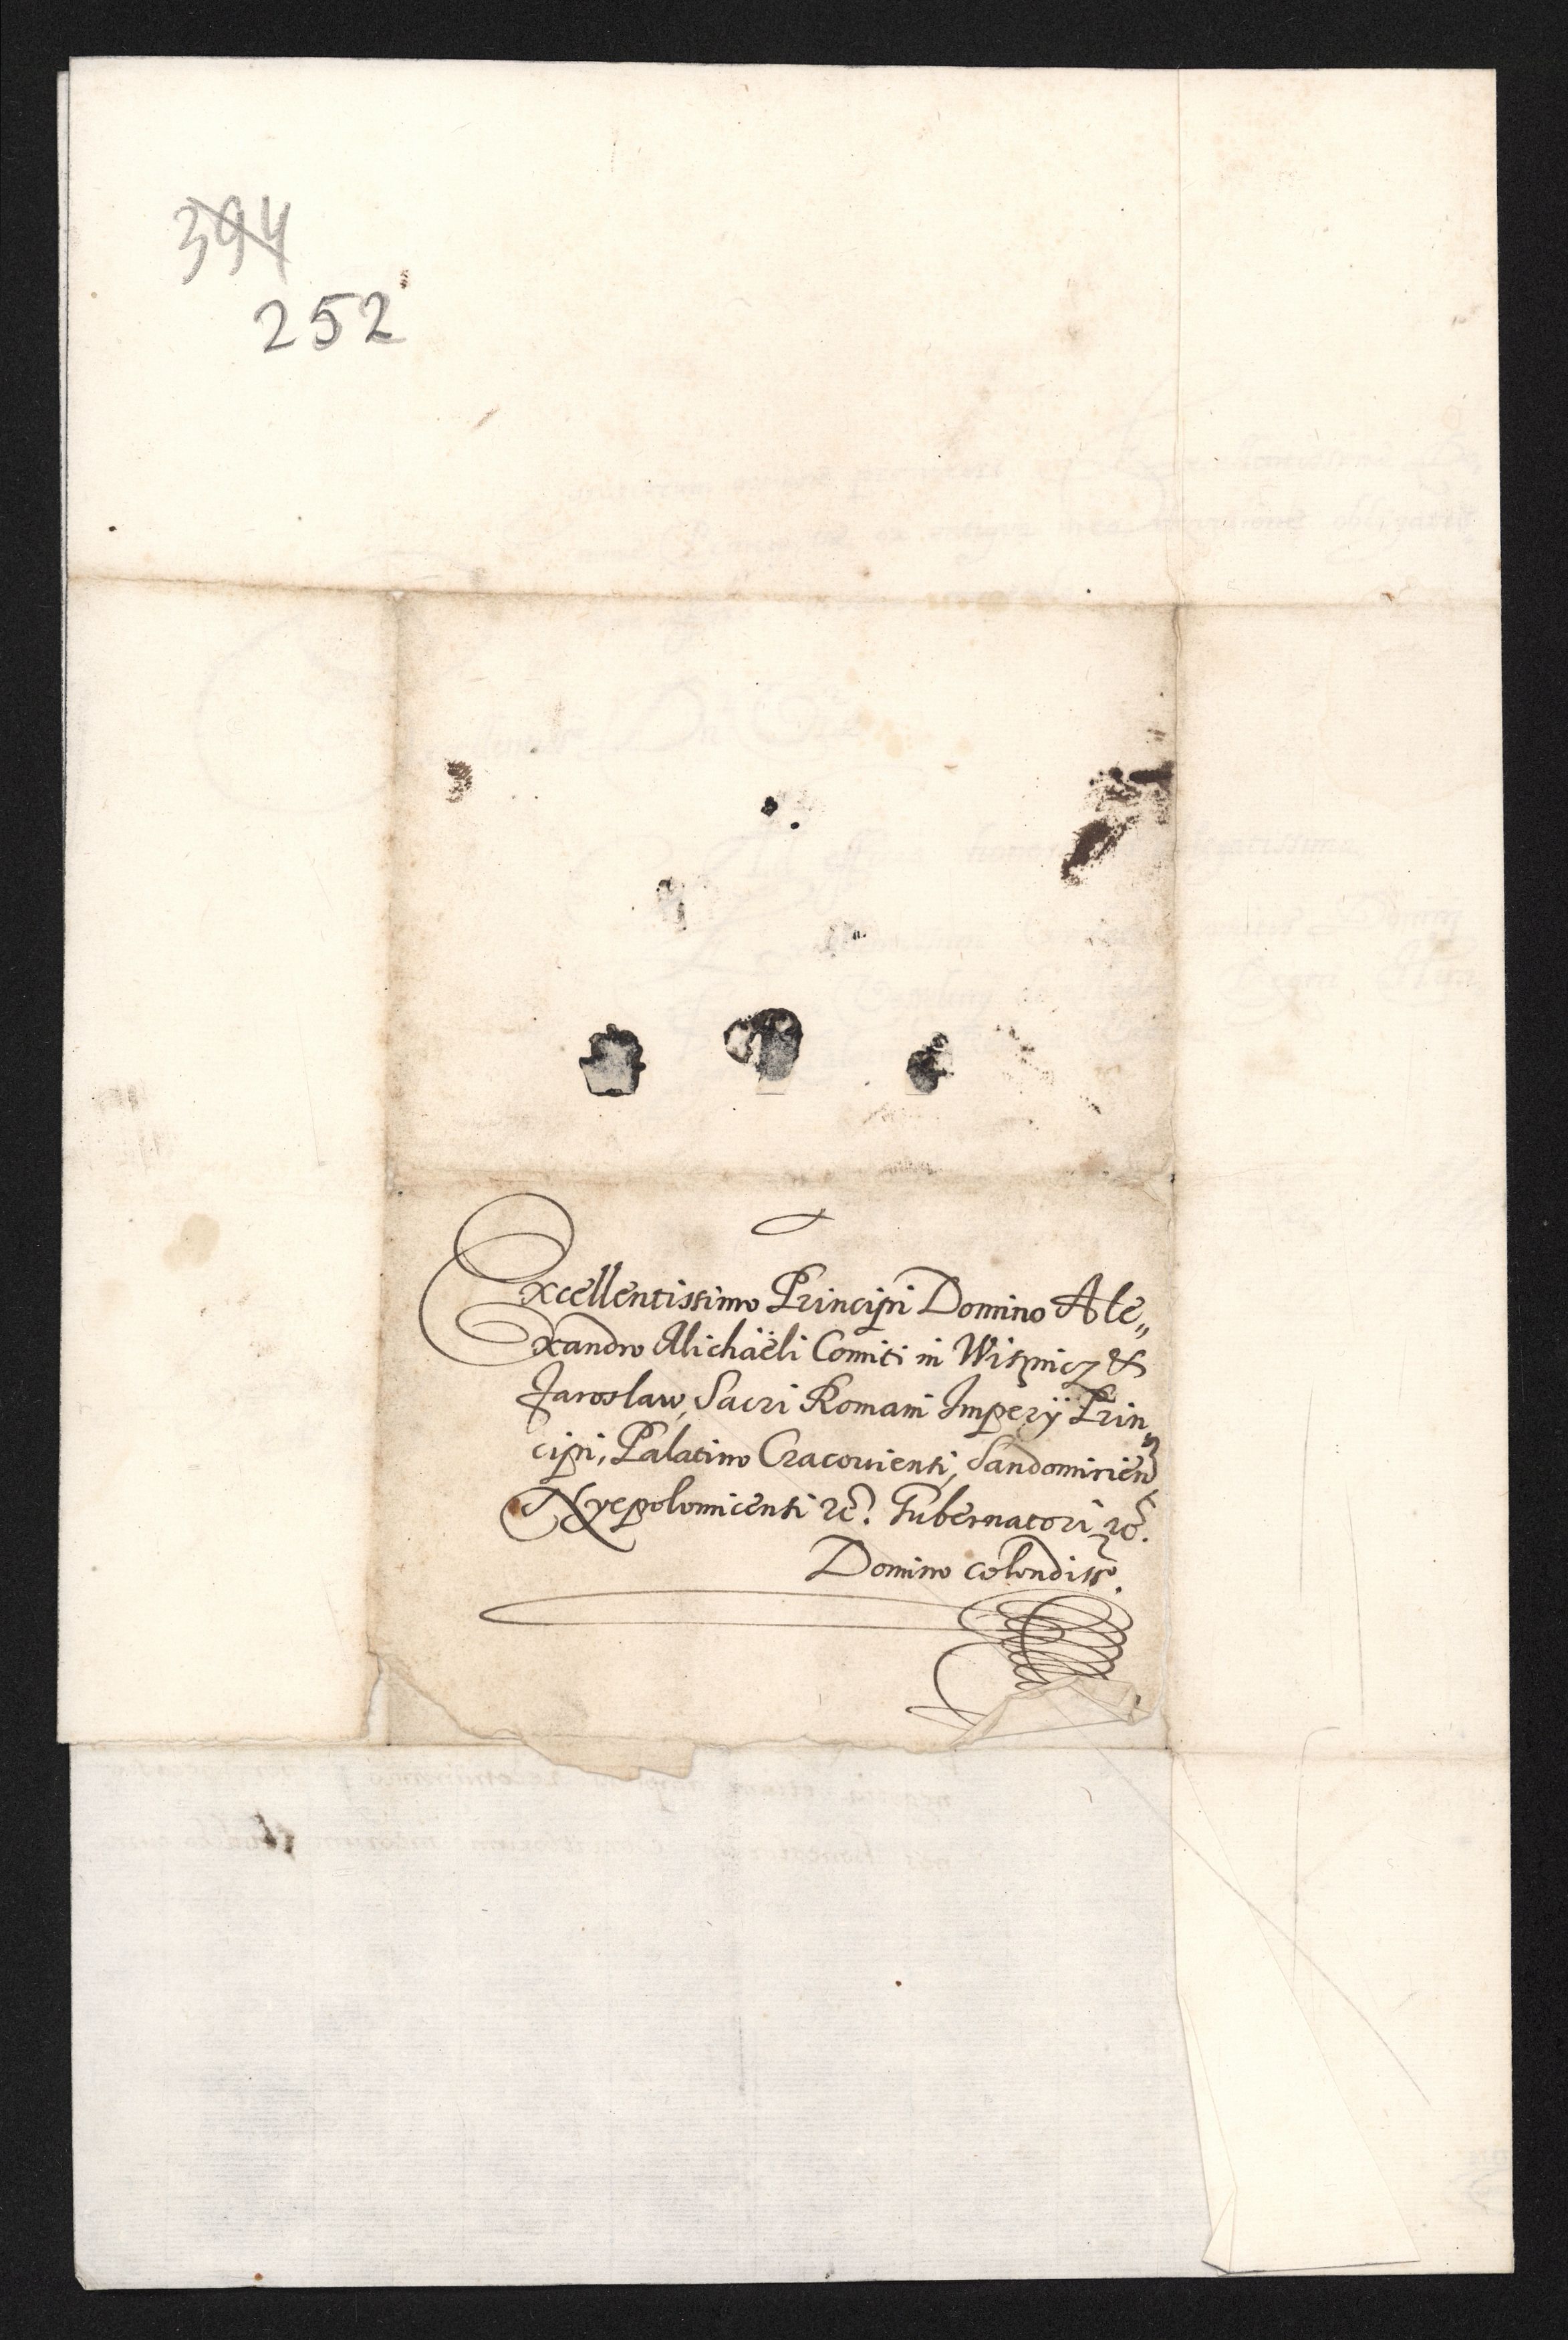 394
252
Excellentissimo Principi Domino Ale„
xandro Michaëli Comiti in Wisznicz &
Jaroslaw, Sacri Romani Imperÿ Prin„
cipi, Palatino Cracouiensi, Sandomirien
Nyepolomicensi &c. Gubernatori &c.
Domino colendiss.